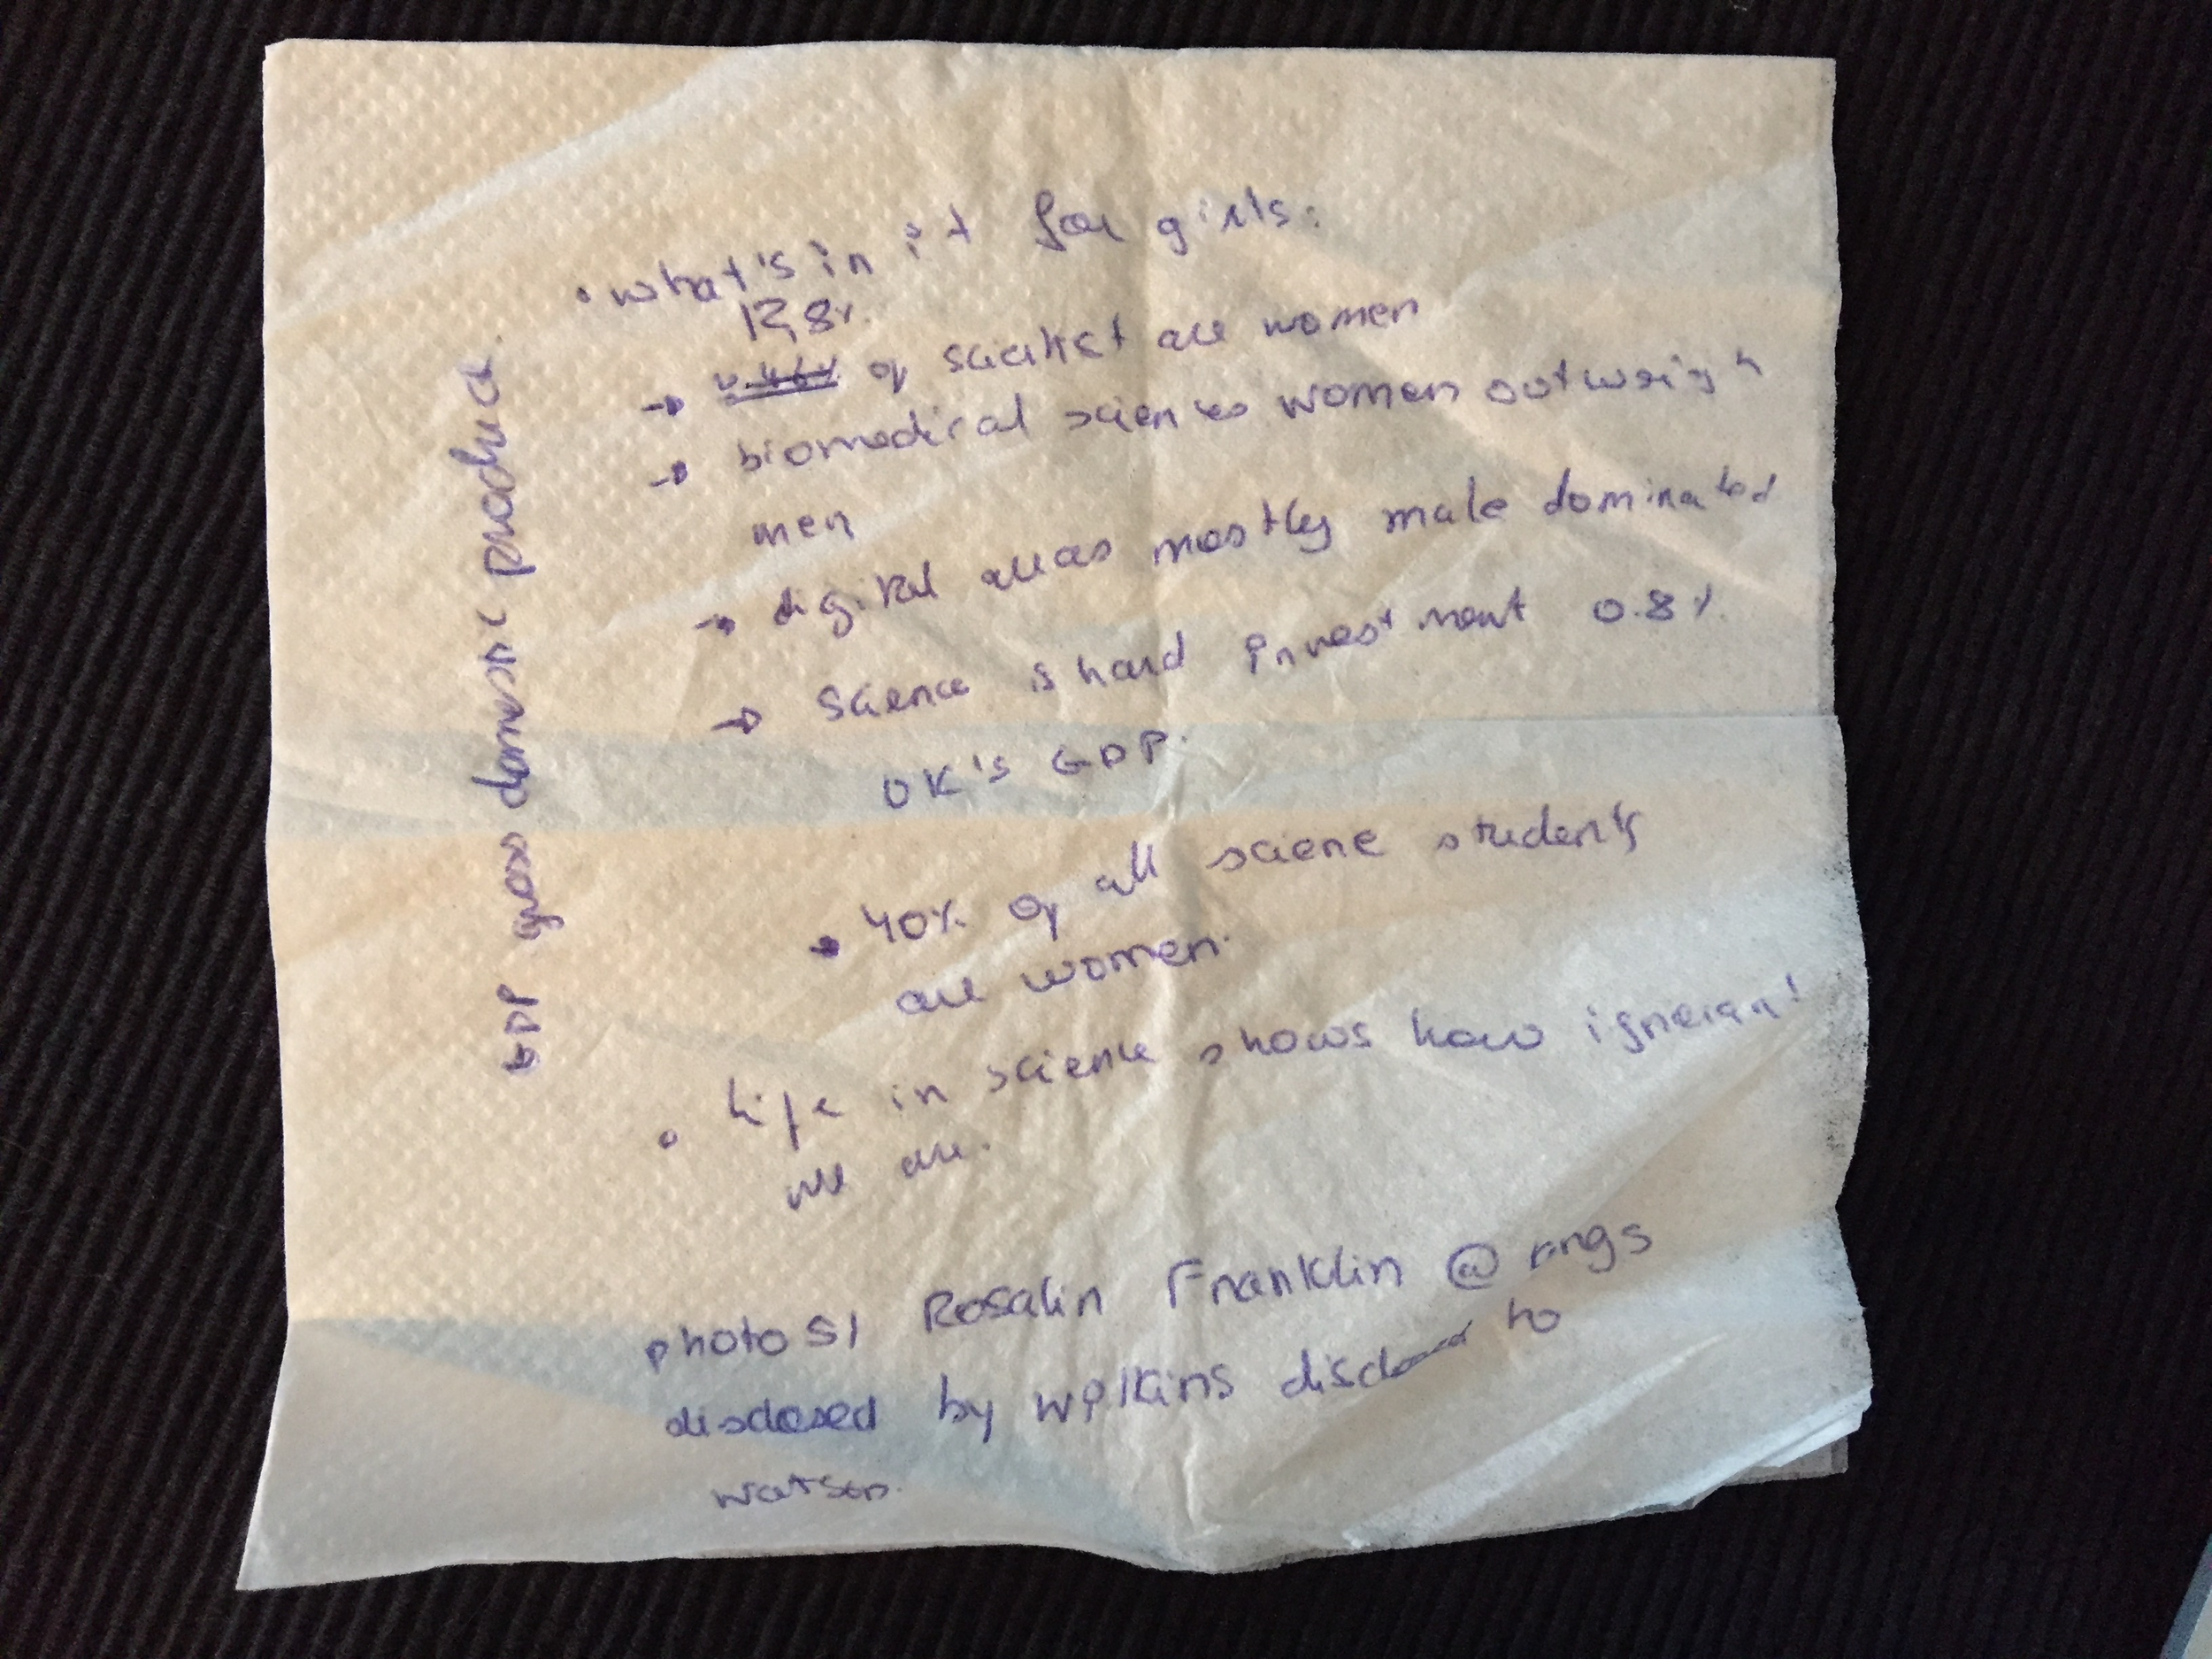 • what's in it for girls:
12,8%
→ of scientist are women
→ biomedical sciences women outweigh
men
→ digital areas mostly male dominated
→ Science is hard investment 0.8%
UK's GDP.
→ 40% of all sciene students
are women.
• life in science shows how ignorant
we are.
photo 51 Rosalin Franklin @ Kings
disclosed by Wilkins disclosed to
Watson.
GDP gross domestic product